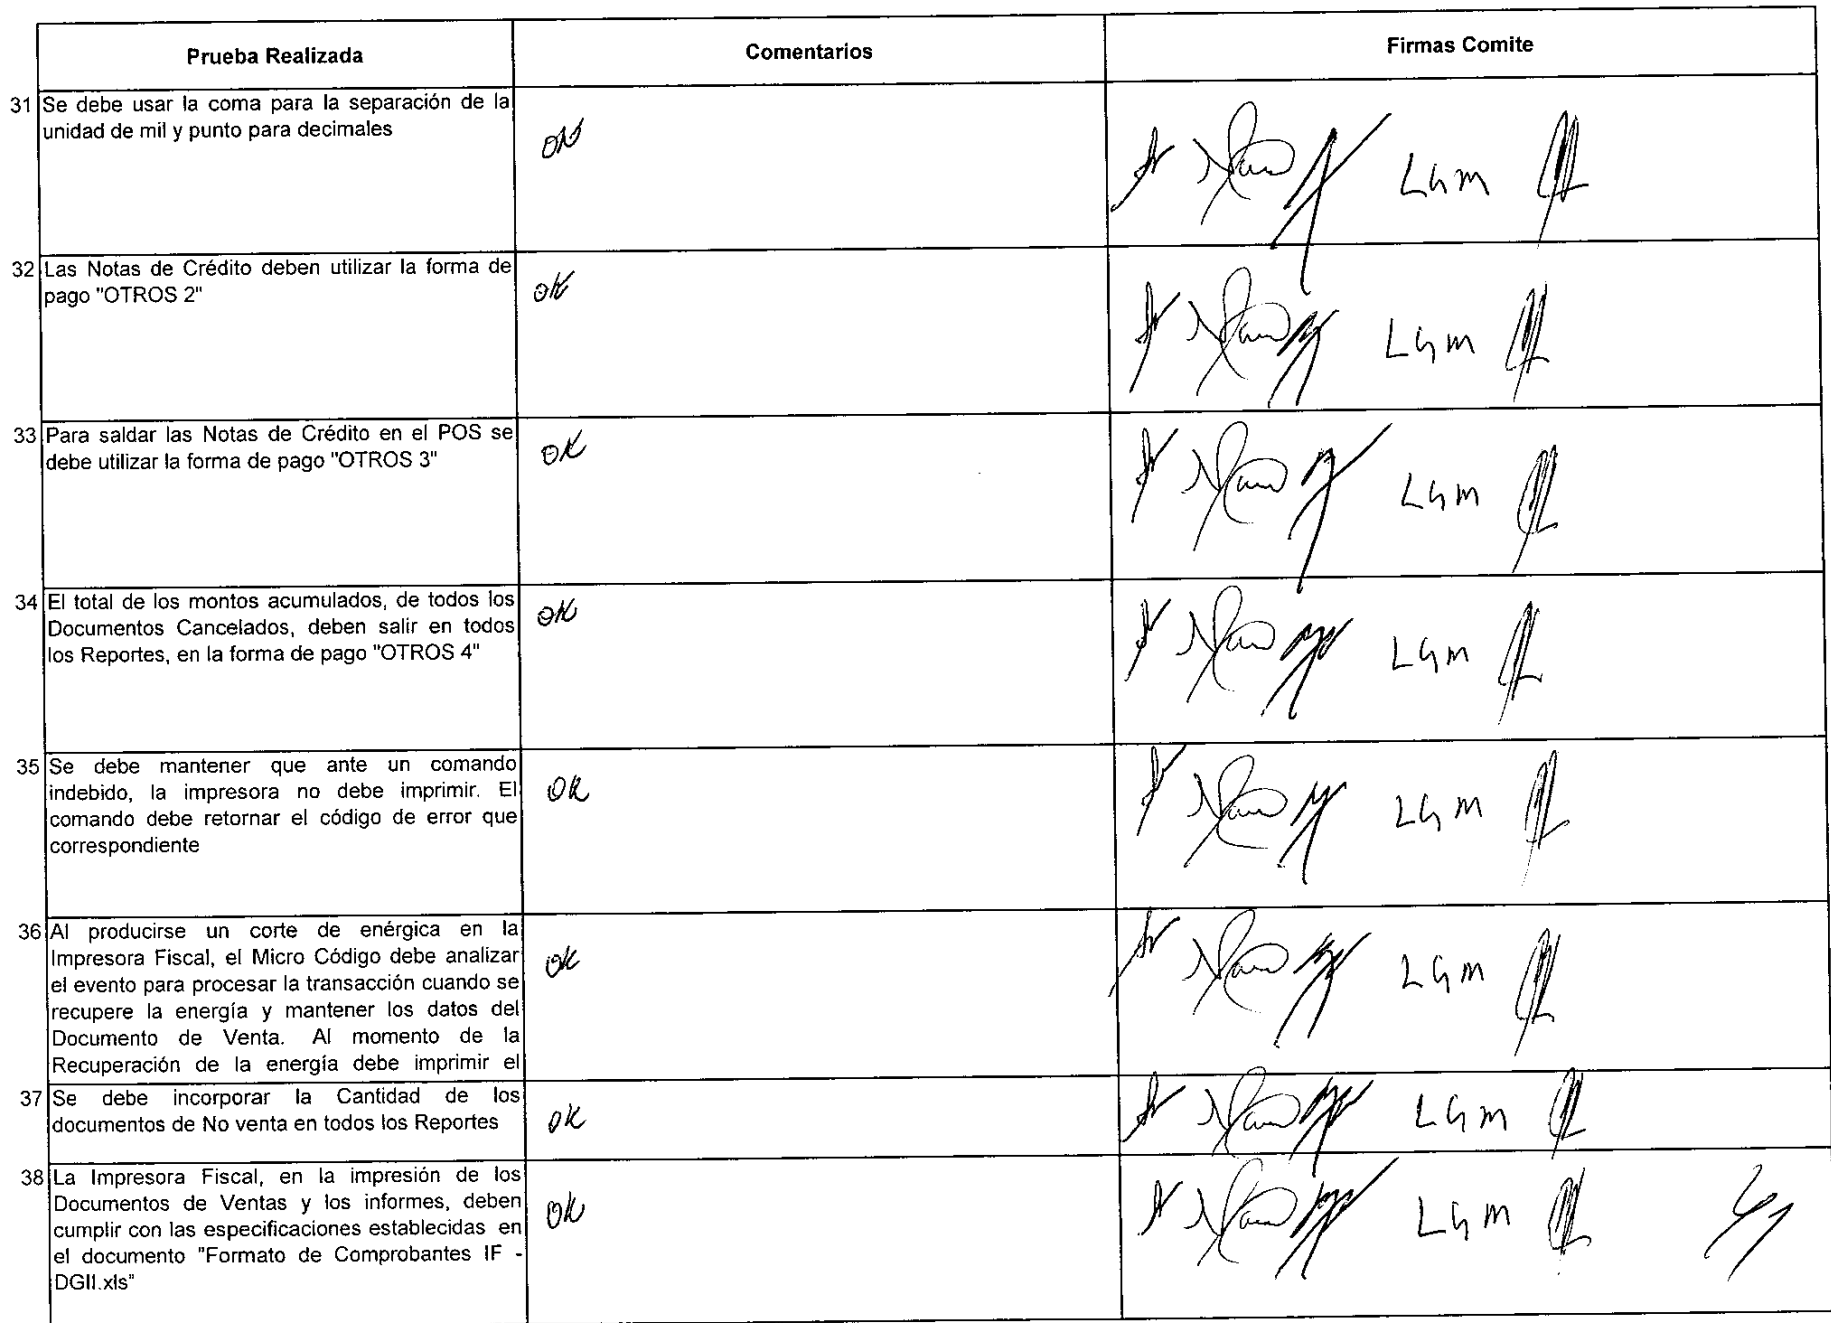 Prueba Realizada Comentarios Firmas Comite
31 Se debe usar la coma para la separación de la
unidad de mil y punto para decimales
OK
LGM
32 Las Notas de Crédito deben utilizar la forma de
pago "OTROS 2"
OK
LGM
33 Para saldar las Notas de Crédito en el POS se
debe utilizar la forma de pago "OTROS 3"
OK
LGM
34 El total de los montos acumulados, de todos los
Documentos Cancelados, deben salir en todos
los Reportes, en la forma de pago "OTROS 4"
OK
LGM
35 Se debe mantener que ante un comando
indebido, la impresora no debe imprimir. El
comando debe retornar el código de error que
correspondiente
OK
LGM
36 Al producirse un corte de enérgica en la
Impresora Fiscal, el Micro Código debe analizar
el evento para procesar la transacción cuando se
recupere la energía y mantener los datos del
Documento de Venta. Al momento de la
Recuperación de la energía debe imprimir el
OK
LGM
37 Se debe incorporar la Cantidad de los
documentos de No venta en todos los Reportes
OK
LGM
38 La Impresora Fiscal, en la impresión de los
Documentos de Ventas y los informes, deben
cumplir con las especificaciones establecidas en
el documento "Formato de Comprobantes IF -
DGII.xls"
OK
LGM